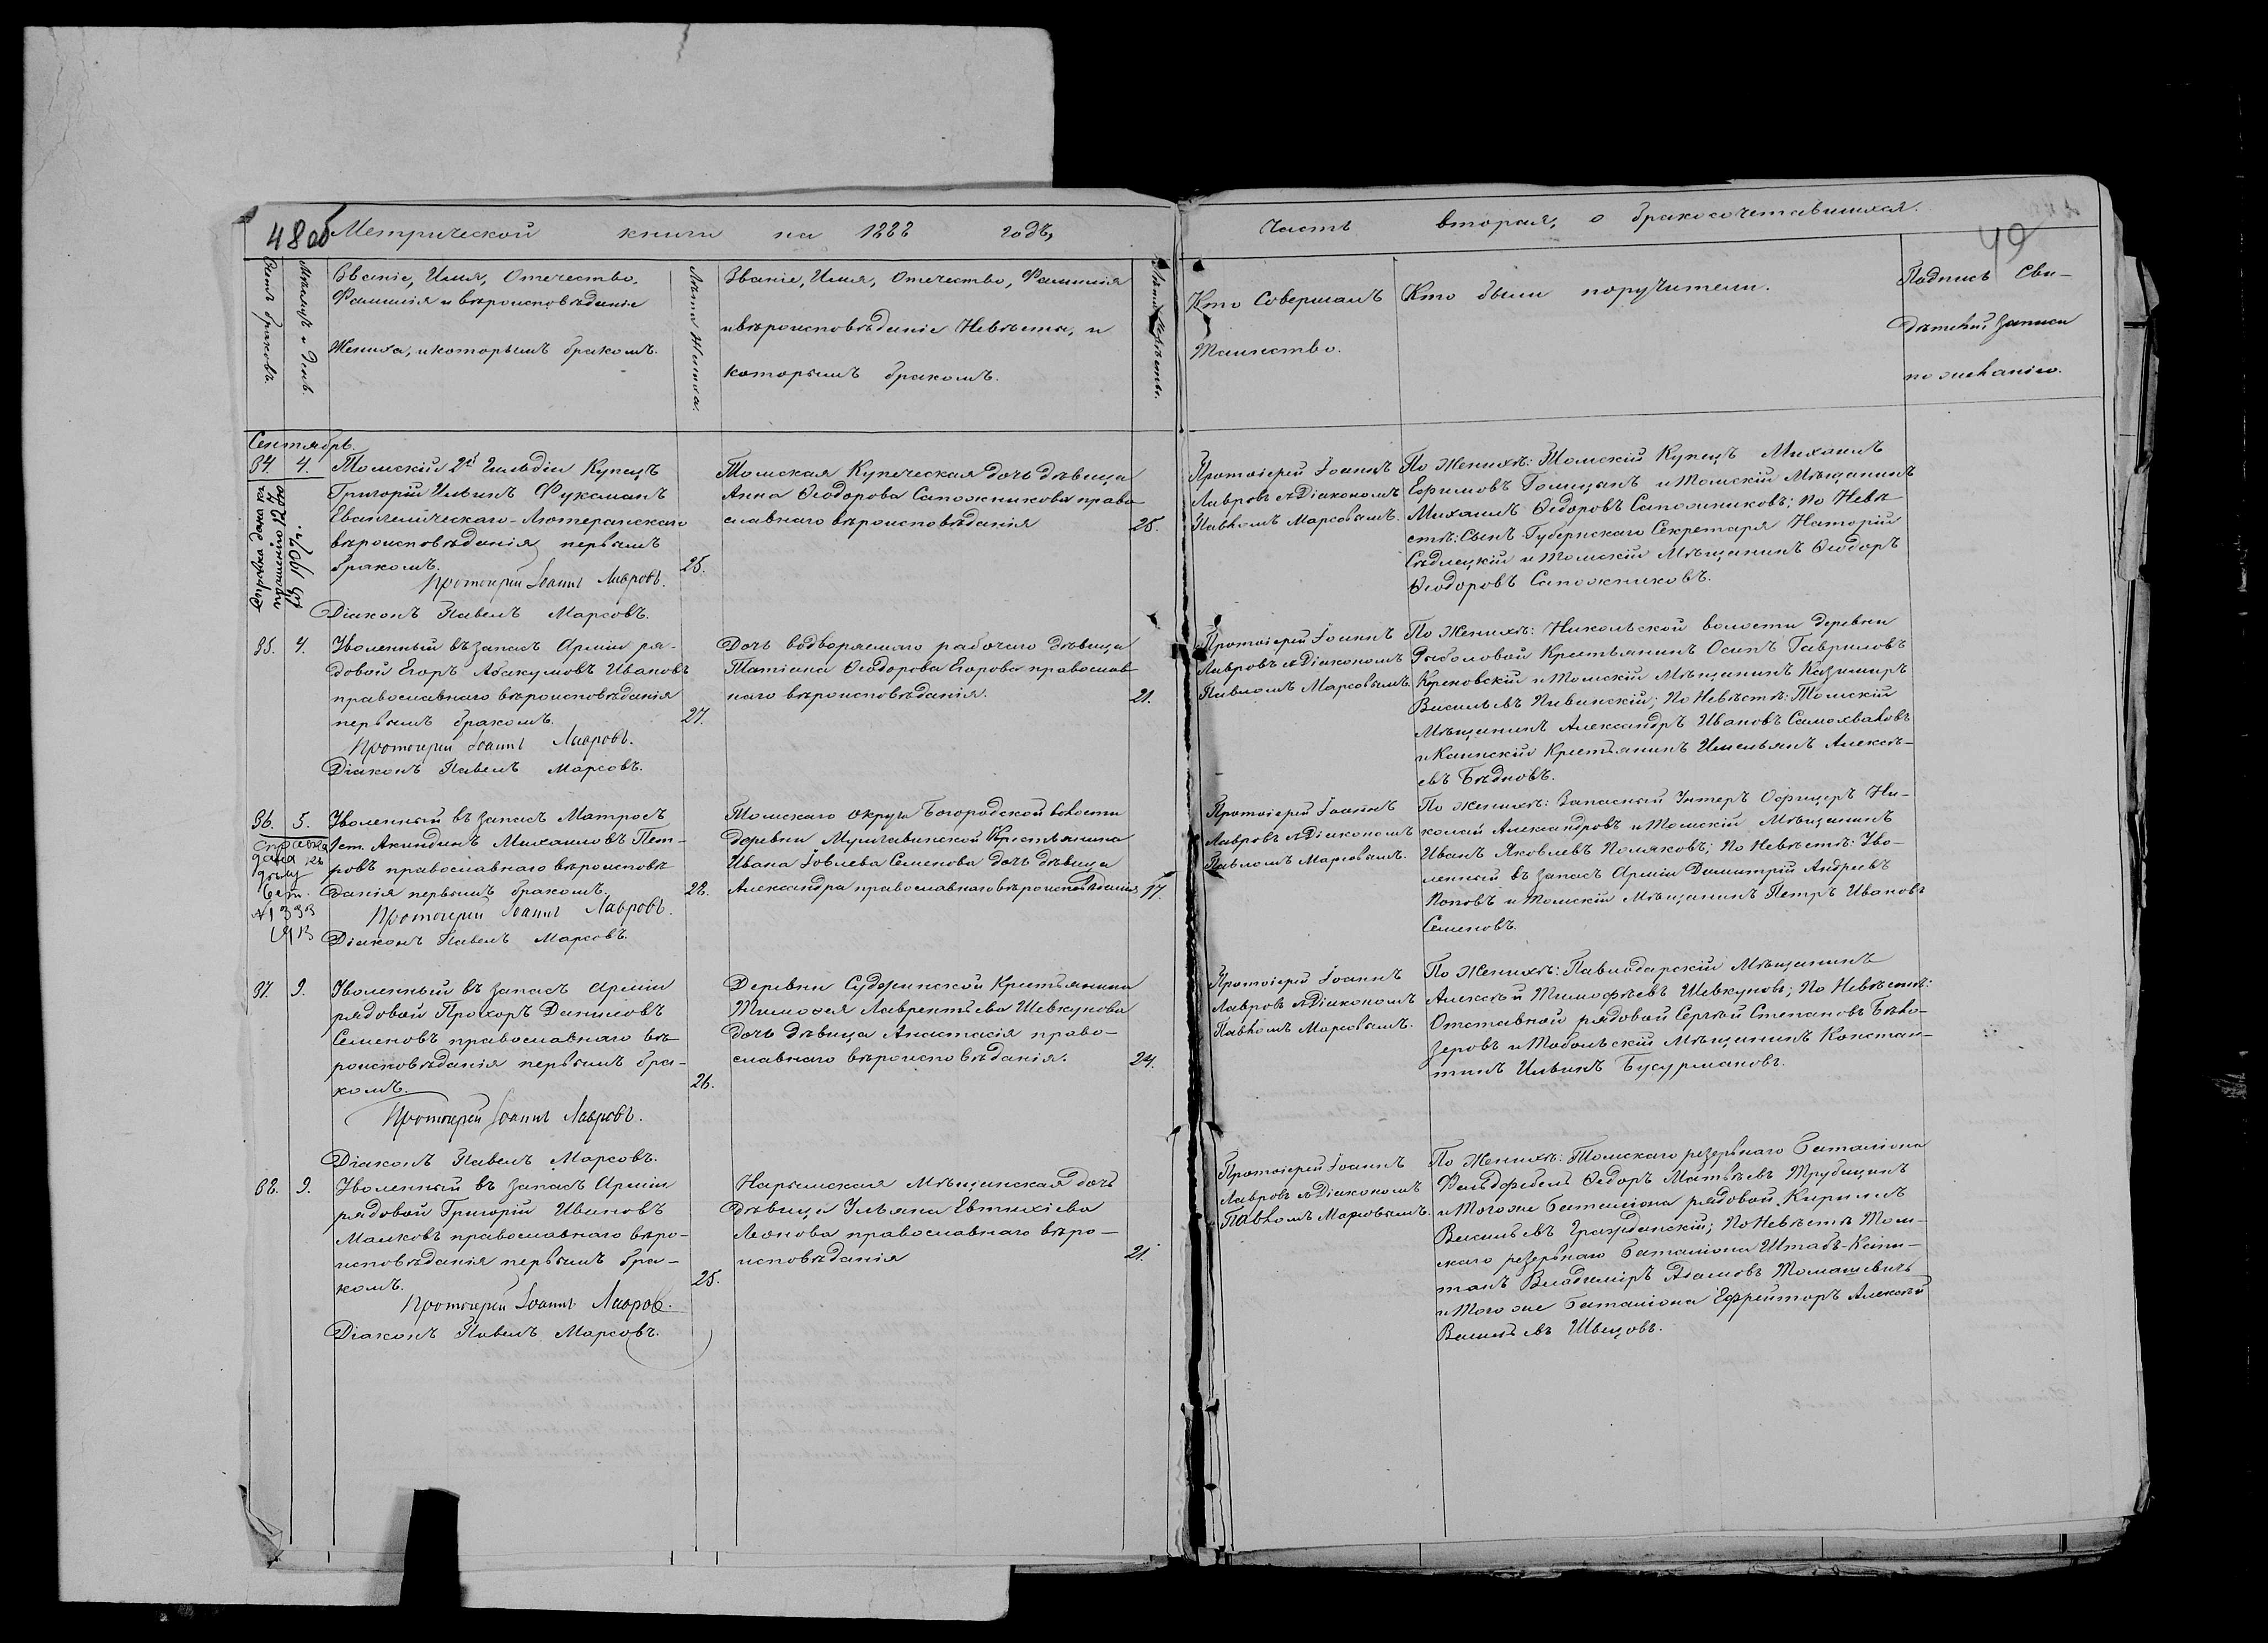 48 об
Метрической книги на 1888 годъ,
Счетъ браковъ.
Мѣсяцъ и день.
Званіе, Имя, Отечество,
Фамилія и вѣроисповѣданіе
Жениха, и которымъ бракомъ.
Лѣта Жениха.
Званіе, Имя, Отечество, Фамилія
и вѣроисповѣданіе Невѣсты, и
которымъ бракомъ.
Лѣта Невѣсты.
Сентябрь
34. 4.
Томскій 2й Гильдіи Купецъ
Григорій Ильинъ Фуксманъ
Евангелическаго-Лютеранскаго
вѣроисповѣданія, первымъ
бракомъ.
25.
Протоіерей Іоаннъ Лавровъ.
Діаконъ Павелъ Марсовъ.
Томская Купеческая дочь дѣвица
Анна Ѳеодорова Сапожникова право
славнаго вѣроисповѣданія
25.
35. 4.
Уволенный въ запасъ Арміи ря-
довой Егоръ Абакумовъ Ивановъ
православнаго вѣроисповѣданія
первымъ бракомъ.
27.
Протоіерей Іоаннъ Лавровъ.
Діаконъ Павелъ Марсовъ.
Дочь водворяемаго рабочаго дѣвица
Татіана Ѳеодорова Егорова православ
наго вѣроисповѣданія.
21.
36. 5.
справка
дана къ
дѣлу
Уволенный въ запасъ Матросъ
1ст. Акиндинъ Михаиловъ Пет-
ровъ православнаго вѣроисповѣ
данія первымъ бракомъ.
28.
Протоіерей Іоаннъ Лавровъ.
Діаконъ Павелъ Марсовъ.
Томскаго округа Богородской волости
деревни Крестьянина
Ивана Іовлева Семенова дочь дѣвица
Александра православнаго вѣроисповѣданія
17.
37. 9.
Уволенный въ запасъ арміи
рядовой Прохоръ Даниловъ
Семеновъ православнаго вѣ
роисповѣданія первымъ бра-
комъ.
26.
Протоіерей Іоаннъ Лавровъ.
Діаконъ Павелъ Марсовъ.
Деревни Суджинской Крестьянина
Тимофея Лаврентьева Шевкунова
дочь дѣвица Анастасія право-
славнаго вѣроисповѣданія.
24.
38. 9.
Уволенный въ запасъ Арміи
рядовой Григорій Ивановъ
Малковъ православнаго вѣро-
исповѣданія первымъ бра-
комъ.
25.
Протоіерей Іоаннъ Лавров.
Діаконъ Павелъ Марсовъ.
Нарымская Мѣщанская дочь
дѣвица Ульяна Евтихіева
Леонова православнаго вѣро-
исповѣданія
21.
Часть вторая, о бракосочетавшихся.
49
Кто Совершалъ
Таинство.
Кто были поручители.
Подпись Сви-
дѣтелей записи
по желанію.
Протоіерей Іоаннъ
Лавровъ съ Діакономъ
Павломъ Марсовымъ.
По Женихѣ: Томскій Купецъ Михаилъ
Ефимовъ Голицынъ и Томскій Мѣщанинъ
Михаилъ Ѳедоровъ Сапожниковъ; по Невѣ
стѣ: Сынъ Губернскаго Секретаря
Сѣдлецкій и Томскій Мѣщанинъ Ѳеодоръ
Ѳеодоровъ Сапожниковъ.
Протоіерей Іоаннъ
Лавровъ съ Діакономъ
Павломъ Марсовымъ.
По Женихѣ: Никольской волости деревни
Рыболовой Крестьянинъ Осипъ Гавриловъ
и Томскій Мѣщанинъ Казимиръ
Васильевъ Пивинскій; По Невѣстѣ: Томскій
Мѣщанинъ Александръ Ивановъ Самохваловъ
и Каинскій Крестьянинъ Имельянъ Алексѣ-
евъ Бѣдновъ.
Протоіерей Іоаннъ
Лавровъ съ Діакономъ
Павломъ Марсовымъ.
По женихѣ: Запасный Унтеръ Офицеръ Ни-
колай Александровъ и Томскій Мѣщанинъ
Иванъ Яковлевъ Поляковъ; По Невѣстѣ: Уво-
ленный въ запасъ Арміи Димитрій Андреевъ
Поповъ и Томскій Мѣщанинъ Петръ Ивановъ
Семеновъ.
Протоіерей Іоаннъ
Лавровъ съ Діакономъ
Павломъ Марсовымъ.
По Женихѣ: Павлодарскій Мѣщанинъ
Алексѣй Тимофѣевъ Шевкуновъ; По Невѣстѣ:
Отставной рядовой Сергѣй Степановъ Бѣло-
зеровъ и Тобольскій Мѣщанинъ Констан-
тинъ Ильинъ Бусурмановъ.
Протоіерей Іоаннъ
Лавровъ съ Діакономъ
Павломъ Марсовымъ.
По Женихѣ: Томскаго резервнаго баталіона
Фельдфебель Ѳедоръ Матвѣевъ Трубицынъ
и Того же баталіона рядовой Кирилъ
Васильевъ Гражданскій; По Невѣстѣ Том-
скаго резервнаго баталіона Штабъ-Капи-
танъ Владиміръ Адамовъ Томашевичъ
и Того же баталіона Ефрейторъ Алексѣй
Васильевъ Швецовъ.